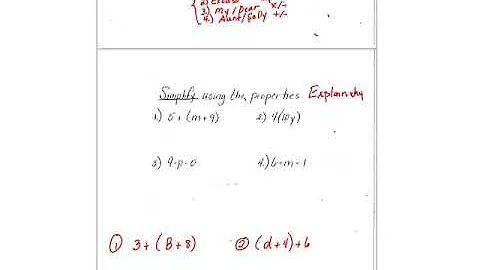 3) My/Dear x/-
4) Aunt/Sally +/-
Simplify using the properties Explain why
1) 5 + (m + 9) 2) 4(10y)
3) 9·p·0 4.) 6·m·1
① 3 + (B + 8) ② (d + 4) + 6